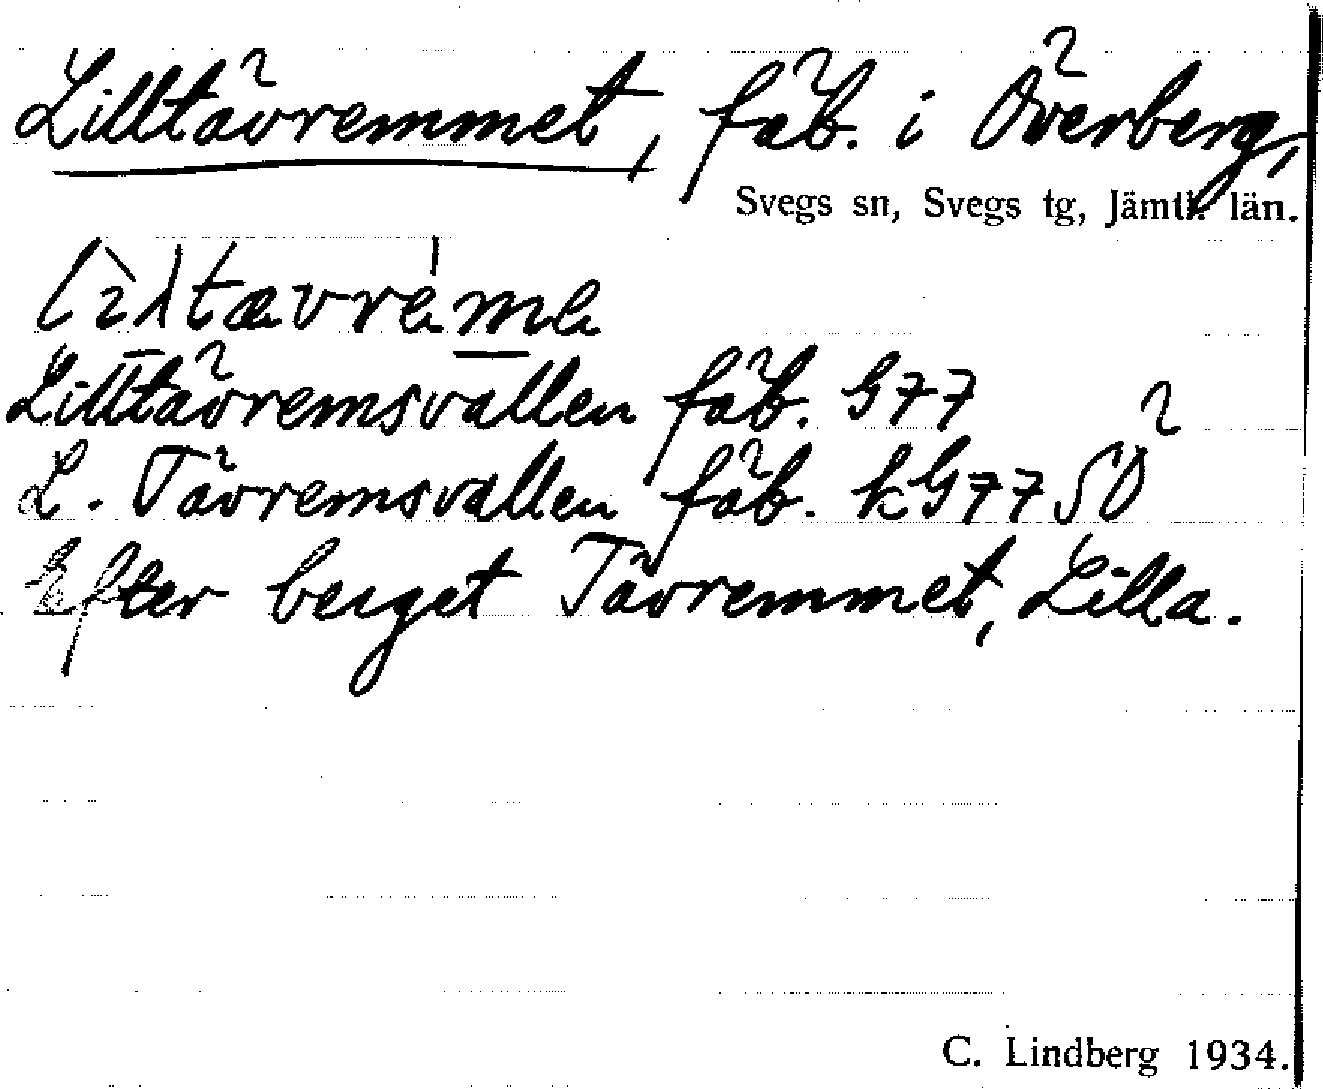 Lilltävremmet, fäb. i Överberg,
Svegs sn, Svegs tg, Jämtl. län.
Lilltävremsvallen fäb. G77
L. Tävremsvallen fäb. kG77SÖ
Efter berget Tävremmet, Lilla.
C. Lindberg 1934.